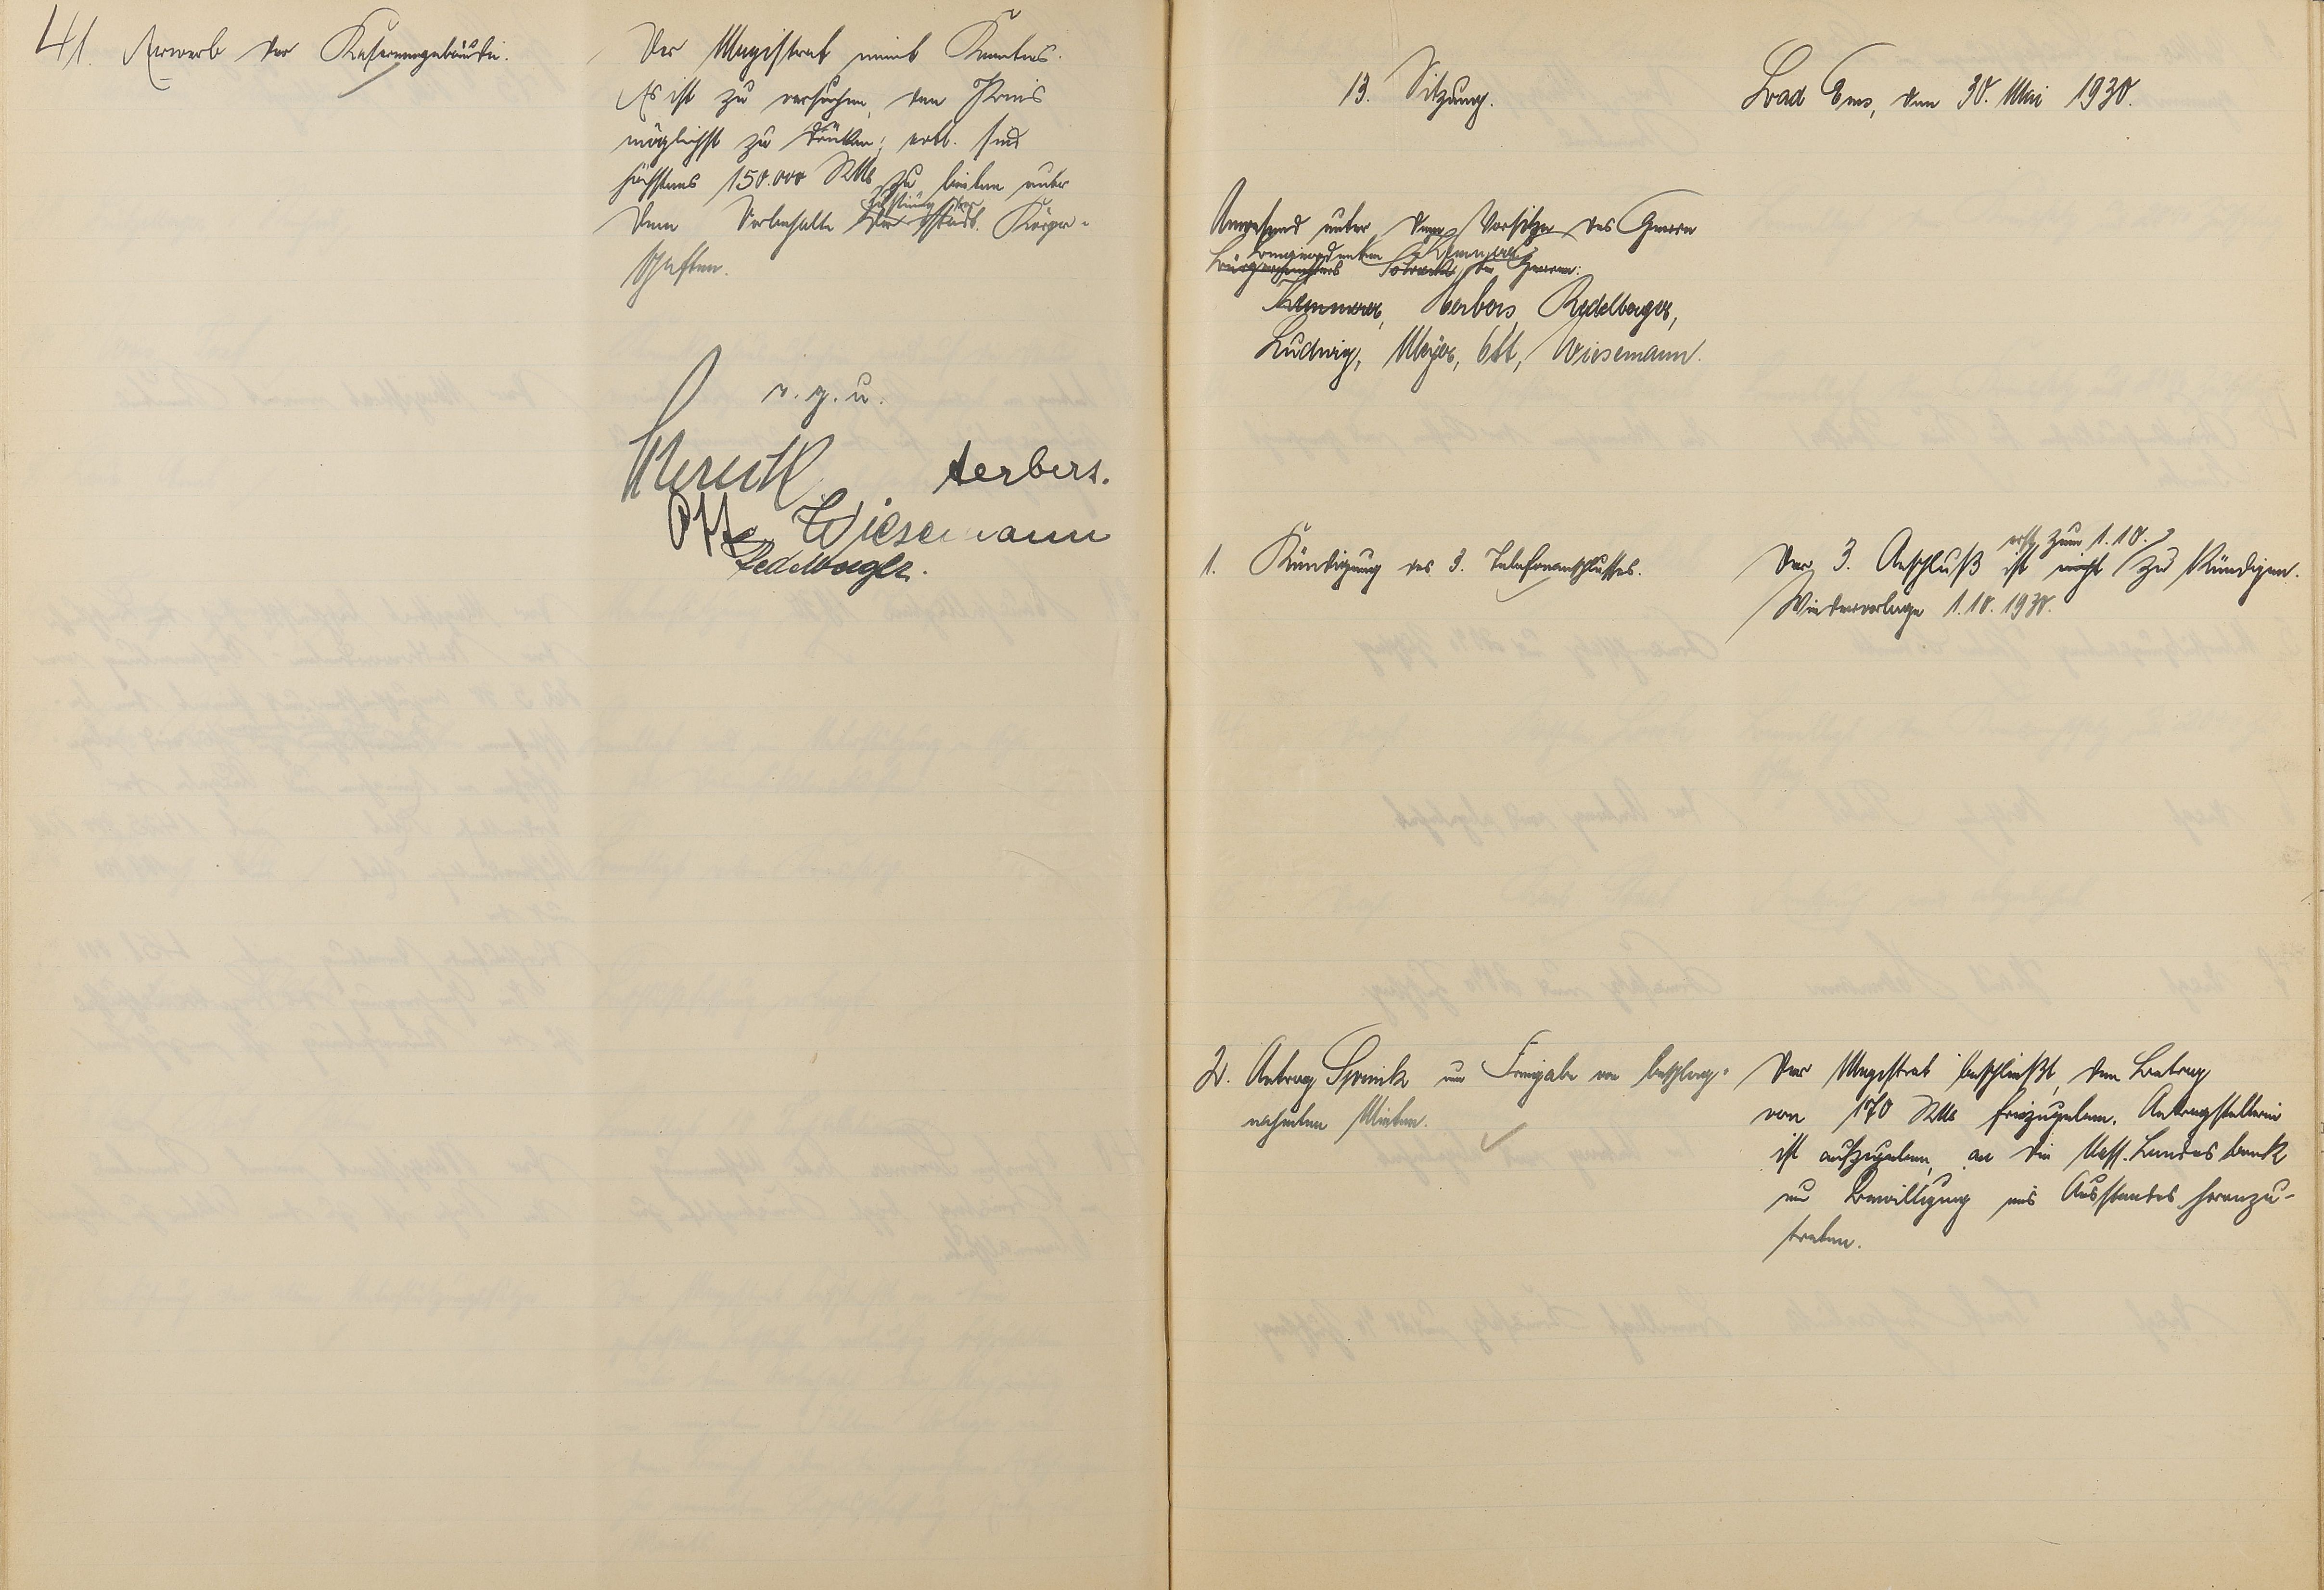 41. Erwerb der Kasernengebäude.
Der Magistrat nimmt Kenntnis.
Es ist zu versuchen, den Preis
möglichst zu drücken; evtl. sind
höchstens 150.000 RM zu bieten unter
dem Vorbehalte der Zustimmung der städt. Körper-
schaften.
v. g. u.
Herbers.
Ott Wiesemann
Redelberger.
13. Sitzung.
Bad Ems, den 30. Mai 1930.
Anwesend unter dem Vorsitze des Herrn
Beigeordneten Kemmerer
Bürgermeisters die Herren:
Kemmerer, Herbers, Redelberger,
Ludwig, Meyer, Ott, Wiesemann.
1. Kündigung des 3. Telefonanschlusses.
erst zum 1.10.
Der 3. Anschluß ist nicht zu kündigen.
Wiedervorlage 1.10.1930.
2. Antrag um Freigabe von beschlag-
nahmten Mieten.
Der Magistrat beschließt, den Betrag
von 170 RM freizugeben. Antragstellerin
ist aufzugeben, an die Nass. Landesbank
um Bewilligung eines Ausstandes heranzu-
treten.